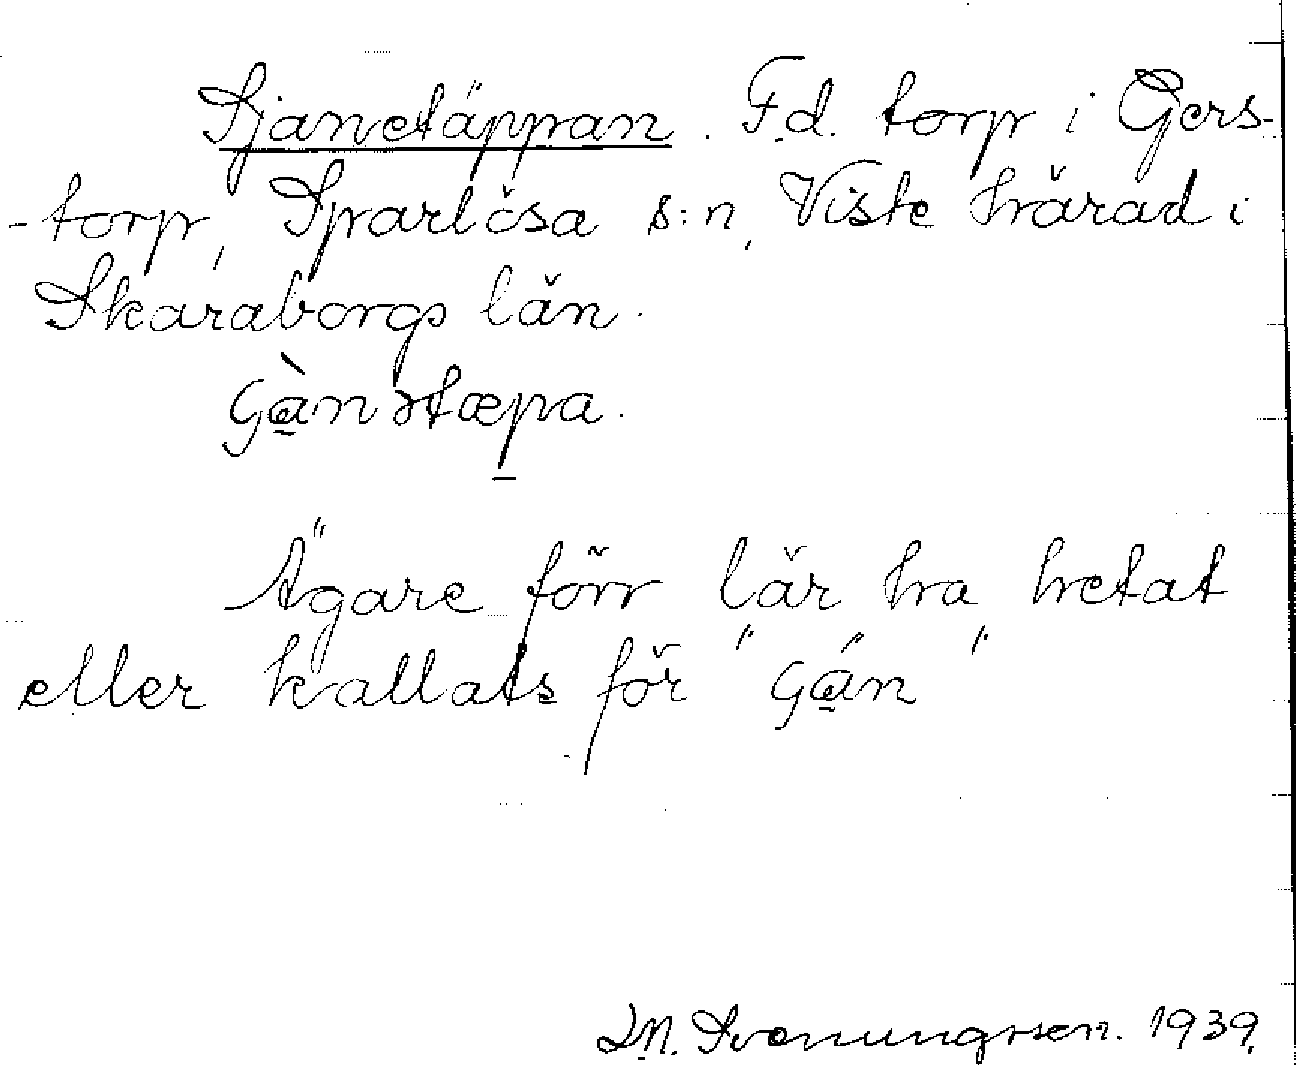 Sjanetäppan. F.d. torp i Gers-
-torp, Sparlösa s:n, Viste härad i
Skaraborgs län.
ʃànətæpa.
Ägare förr lär ha hetat
eller kallats för "ʃán"
M. Svenungssen. 1939.